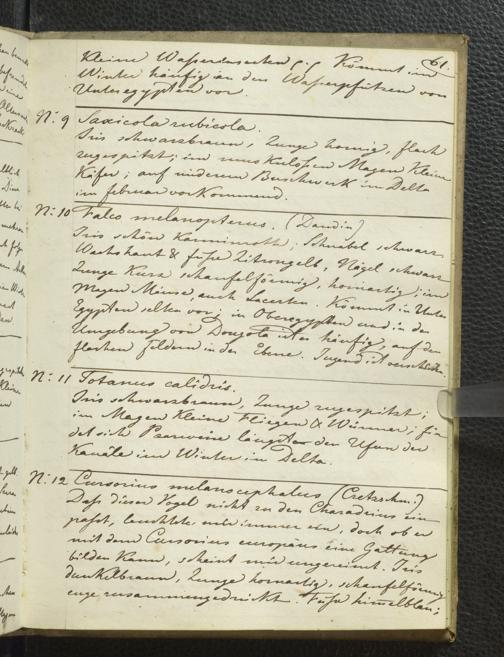 61.
Kleine Wasserinsecten. Kommt im
Winter häufig an den Wasserpfützen von
Unteregypten vor.
N: 9 Saxicola rubicola.
Iris schwarzbraun, Zunge hornig, flach
zugespitzt; im muskulosen Magen Kleine
Käfer; auf niederem Buschwerk im Delta
im februar vorkommend.
N: 10 Falco melanopterus. (Daudin)
Iris schön Karminroth; Schnabel schwarz
Wachshaut & füße Zitrongelb, Nägel schwarz
Zunge Kurz schaufelförmig, hornartig; im
Magen Mäuse, auch Lacerten. Kommt in Unter
Egypten selten vor; in Oberegypten und in der
Umgebung von Dongola ist er häufig, auf den
flachen feldern in der Ebene. Jugend ist
N: 11 Totanus calidris.
Iris schwarzbraun, Zunge zugespitzt;
im Magen Kleine Fliegen & Würmer; fin
det sich Paarweise längst den Ufern der
Kanäle im Winter in Delta.
N: 12 Cursorius melanocephalus (Cretzschm:)
Daß dieser Vogel nicht zu den Charadrius ein
paßt, leuchtete mir immer ein, doch ob er
mit dem Cursorius europäus eine Gattung
bilden Kann, scheint mir ungereimt. Iris
dunkelbraun, Zunge hornartig, schaufelförmig
enge zusammengedrückt. Füße himelblau;